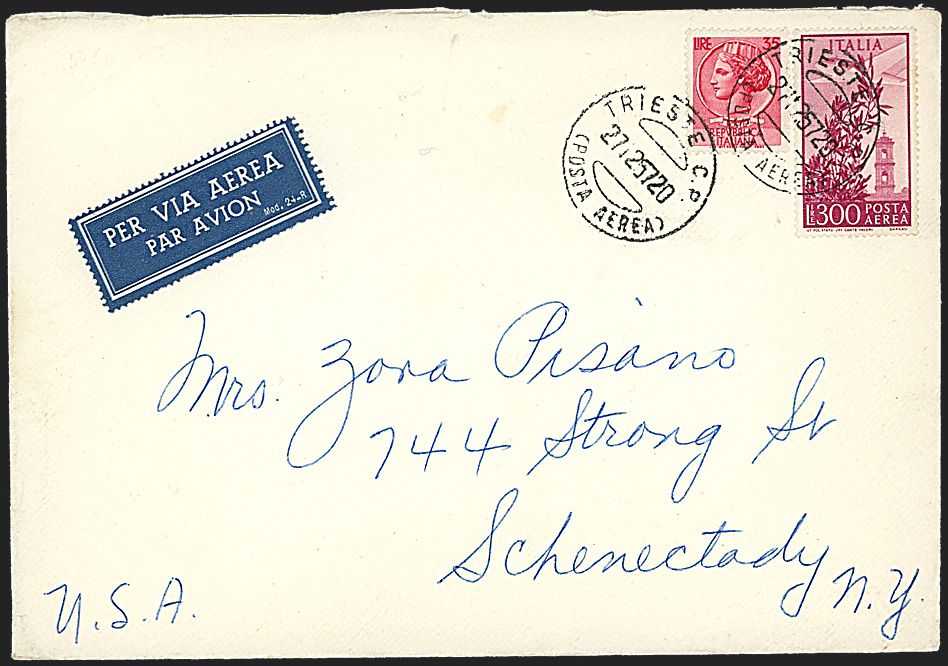 PER VIA AEREA
PAR AVION
Mod. 24-R
LIRE 35
REPUBBLICA
ITALIANA
ITALIA
L. 300 POSTA
AEREA
TRIESTE C.P.
27.12.57 20
(POSTA AEREA)
TRIESTE
27.12.57 20
Mrs. Zora Pisano
744 Strong St
Schenectady
N.Y.
U.S.A.